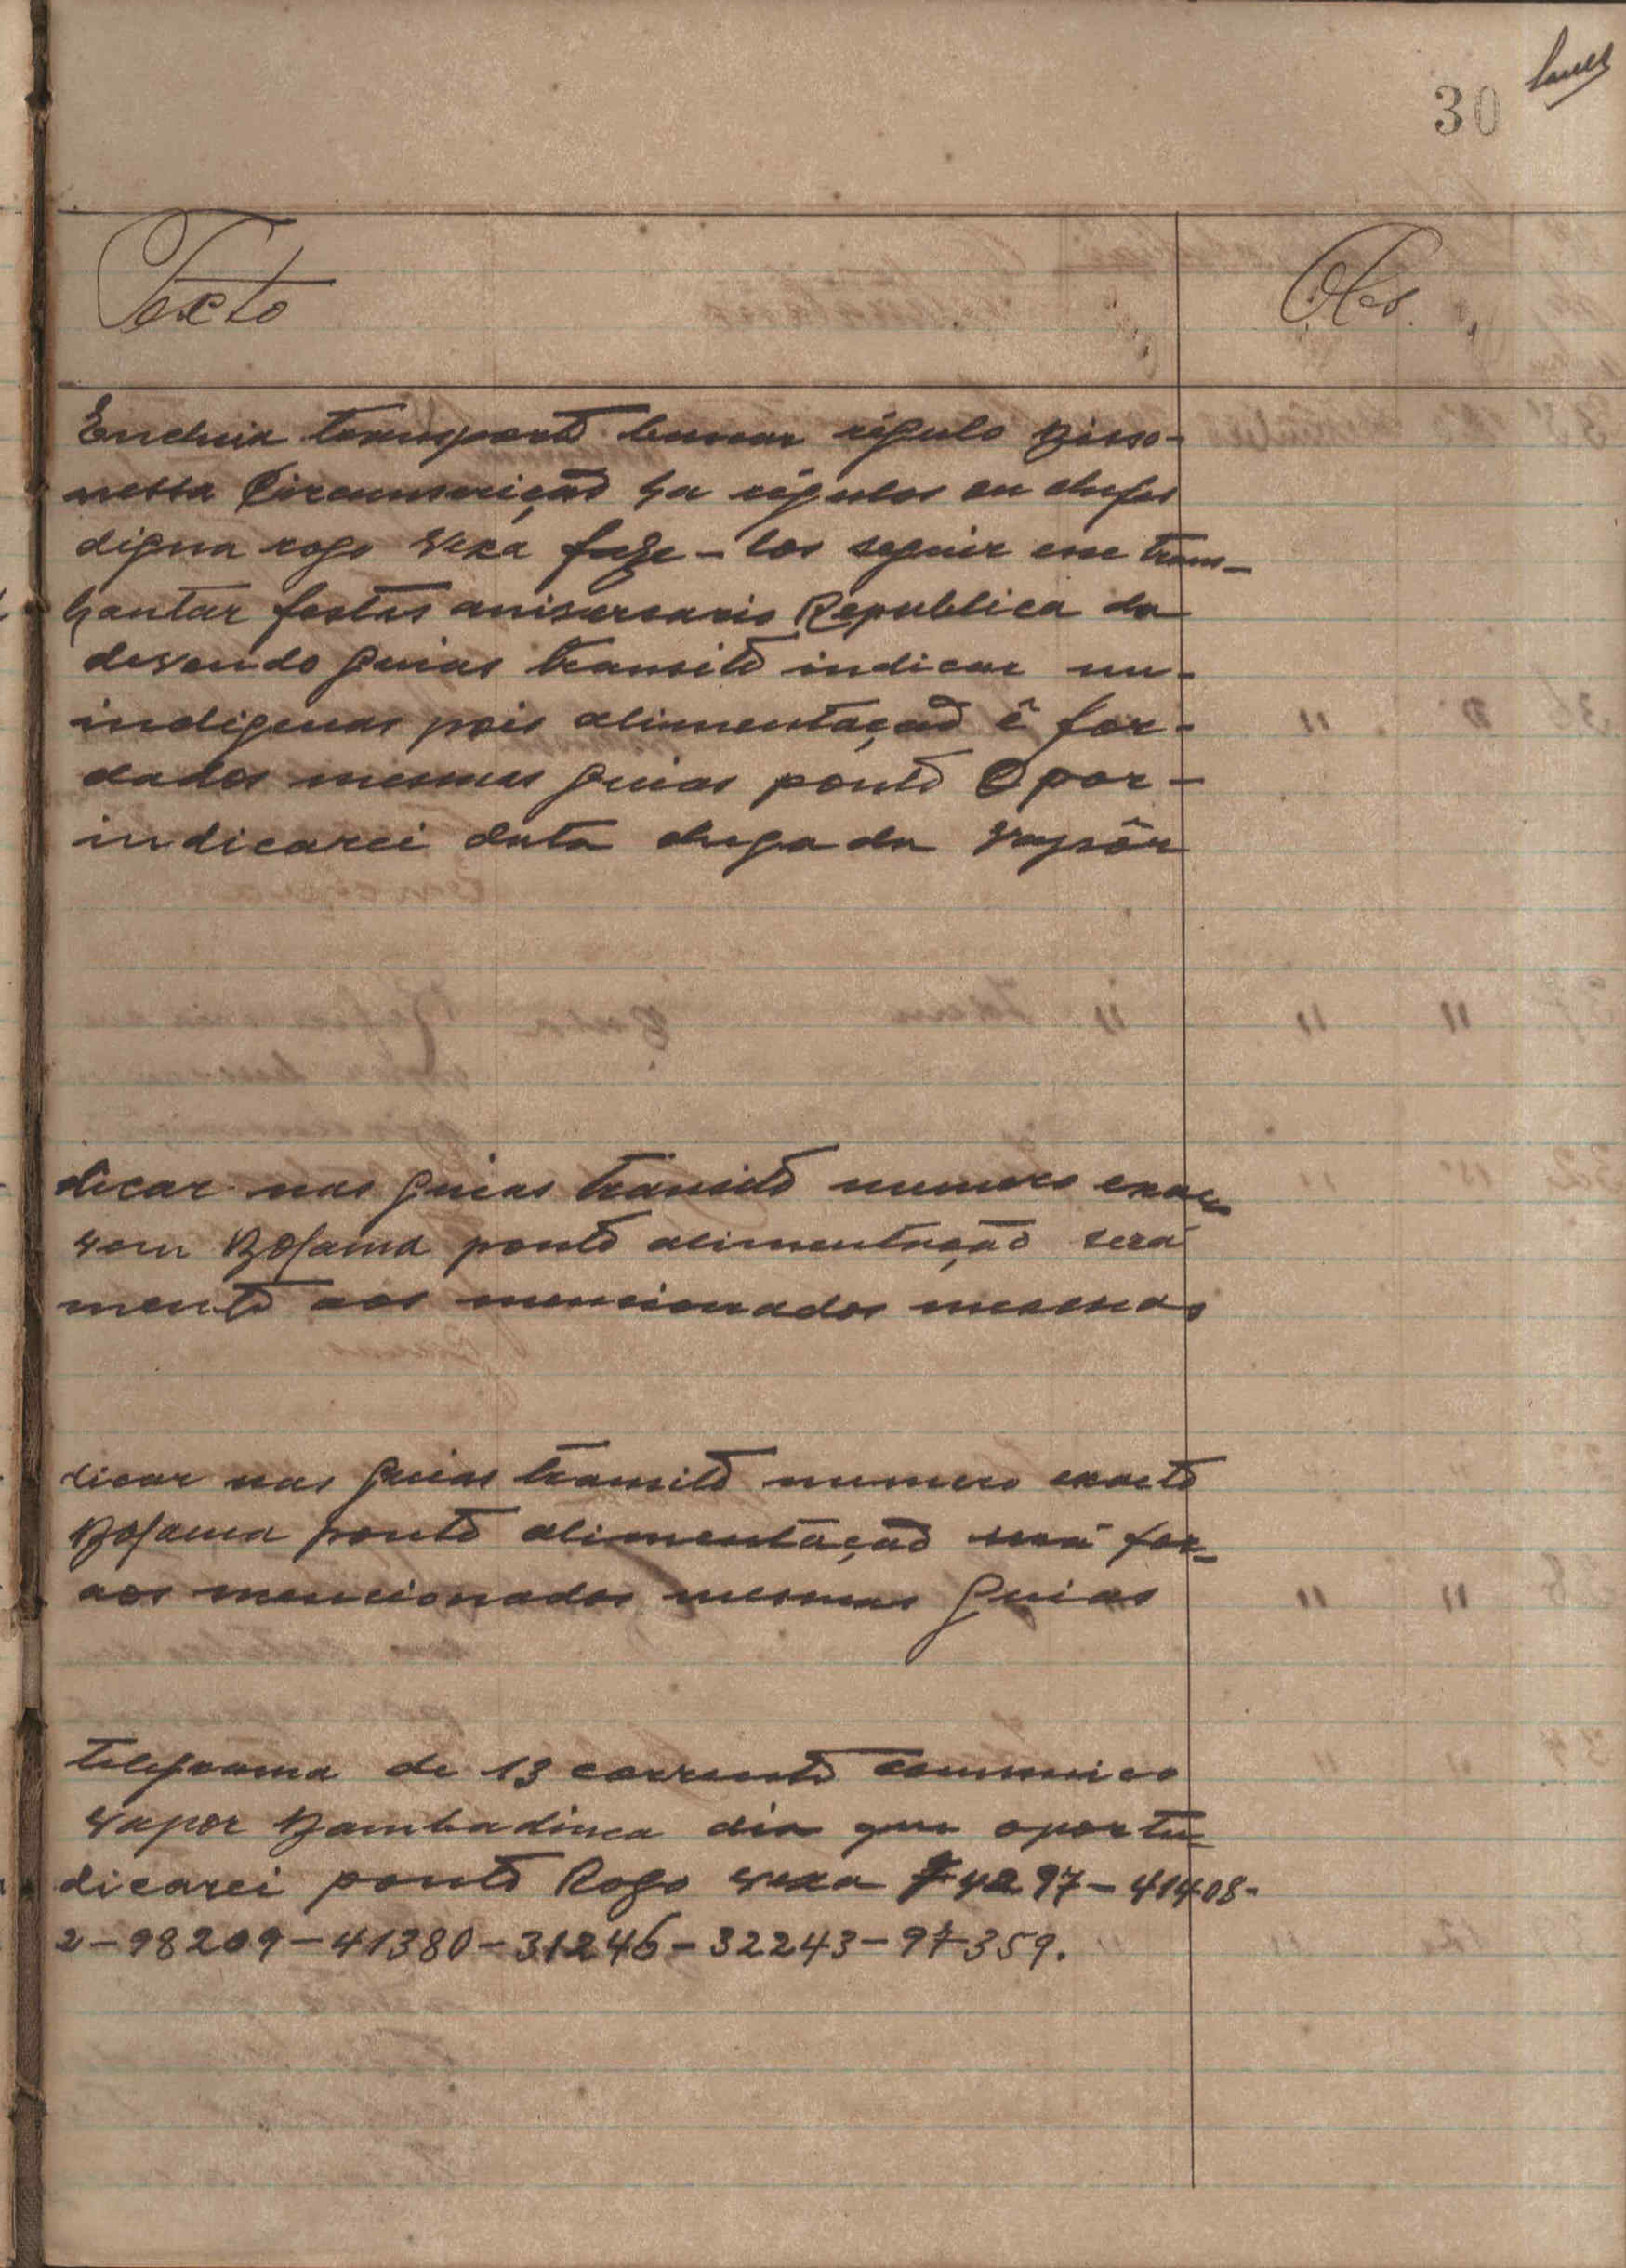 30
Texto
Obs.
Encheia transporte buscar régulo Bisso-
nessa Circunscrição ha régulos ou chefes
digna rogo Vexa faze-los seguir esse trans-
hantar festas aniversario Republica da
devendo guias transito indicar nu-
indigenas pois alimentação é for-
dados mesmas guias ponto Opor-
indicarei data chegada vapôr
dicar nas guias transito numero exac
vem Bolama ponto alimentação será
mente aos mencionados mesmas
dicar nas guias transito numero exacto
Bolama ponto alimentação será for-
aos mencionados mesmas guias
telegrama de 13 corrente communico
vapor Bambadinca dia que oportu-
dicarei ponto Rogo vexa 74297-41408-
2-98209-41380-31246-32243-97359.